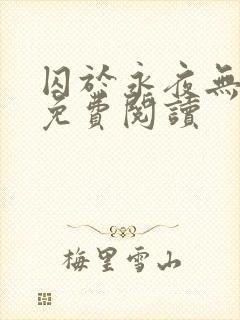 囚於永夜無
免費閱讀
梅里雪山